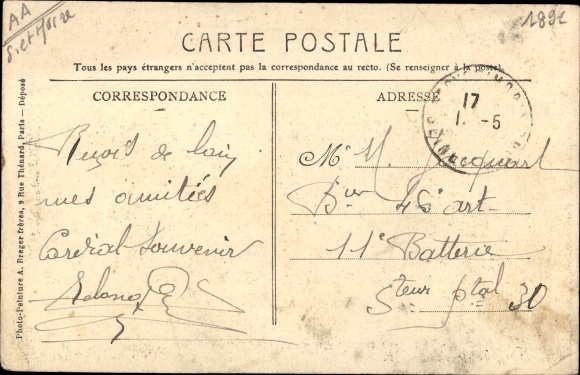 AA
S. et Marne
1892
CARTE POSTALE.
Tous les pays étrangers n'acceptent pas la correspondance au recto. (Se renseigner à la poste).
CORRESPONDANCE
ADRESSE
17
1. -5
Reçois de loin
mes amitiés
Cordial Souvenir
Mr M. Jacquart
Bier 46e art
11e Batterie
Steur ptal 30
Photo-Peinture A. Breger frères, 9 Rue Thénard, Paris — Déposé